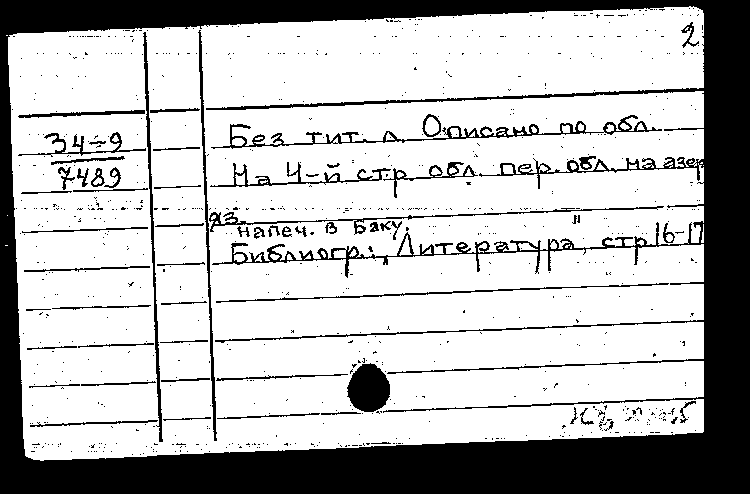 2
34-9
7489
Без тит. л. Описано по обл.
На 4-й стр. обл. пер. обл. на азер
яз.
напеч. в Баку.
Библиогр.: „Литература", стр 16-17